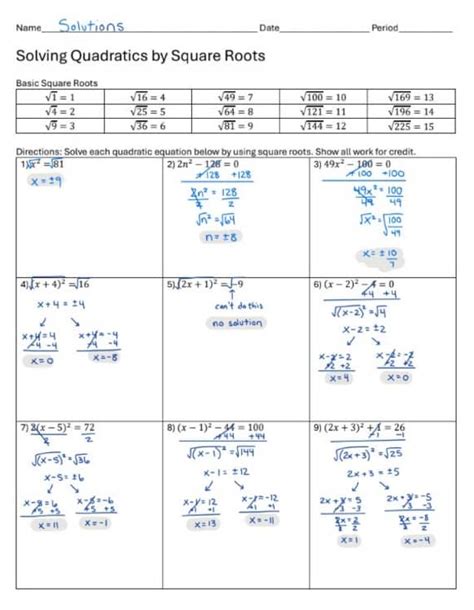 Name Solutions Date Period
Solving Quadratics by Square Roots
Basic Square Roots
√1 = 1 √16 = 4 √49 = 7 √100 = 10 √169 = 13
√4 = 2 √25 = 5 √64 = 8 √121 = 11 √196 = 14
√9 = 3 √36 = 6 √81 = 9 √144 = 12 √225 = 15
Directions: Solve each quadratic equation below by using square roots. Show all work for credit.
1) √x² = √81
x = ±9
2) 2n² − 128 = 0
+128 +128
2n² = 128
2 2
√n² = √64
n = ±8
3) 49x² − 100 = 0
+100 +100
49x² = 100
49 49
√x² = √100
49
x = ± 10
7
4) √(x + 4)² = √16
x + 4 = ±4
x+4=4 x+4=-4
-4 -4 -4 -4
x=0 x=-8
5) √(2x + 1)² = √−9
↑
can't do this
no solution
6) (x − 2)² − 4 = 0
+4 +4
√(x-2)² = √4
x-2 = ±2
x-2=2 x-2=-2
+2 +2 +2 +2
x=4 x=0
7) 2(x − 5)² = 72
2 2
√(x-5)² = √36
x-5 = ±6
x-5=6 x-5=-6
+5 +5 +5 +5
x=11 x=-1
8) (x − 1)² − 44 = 100
+44 +44
√(x-1)² = √144
x-1 = ±12
x-1=12 x-1=-12
+1 +1 +1 +1
x=13 x=-11
9) (2x + 3)² + 1 = 26
-1 -1
√(2x+3)² = √25
2x+3 = ±5
2x+3=5 2x+3=-5
-3 -3 -3 -3
2x=2 2x=-8
2 2 2 2
x=1 x=-4